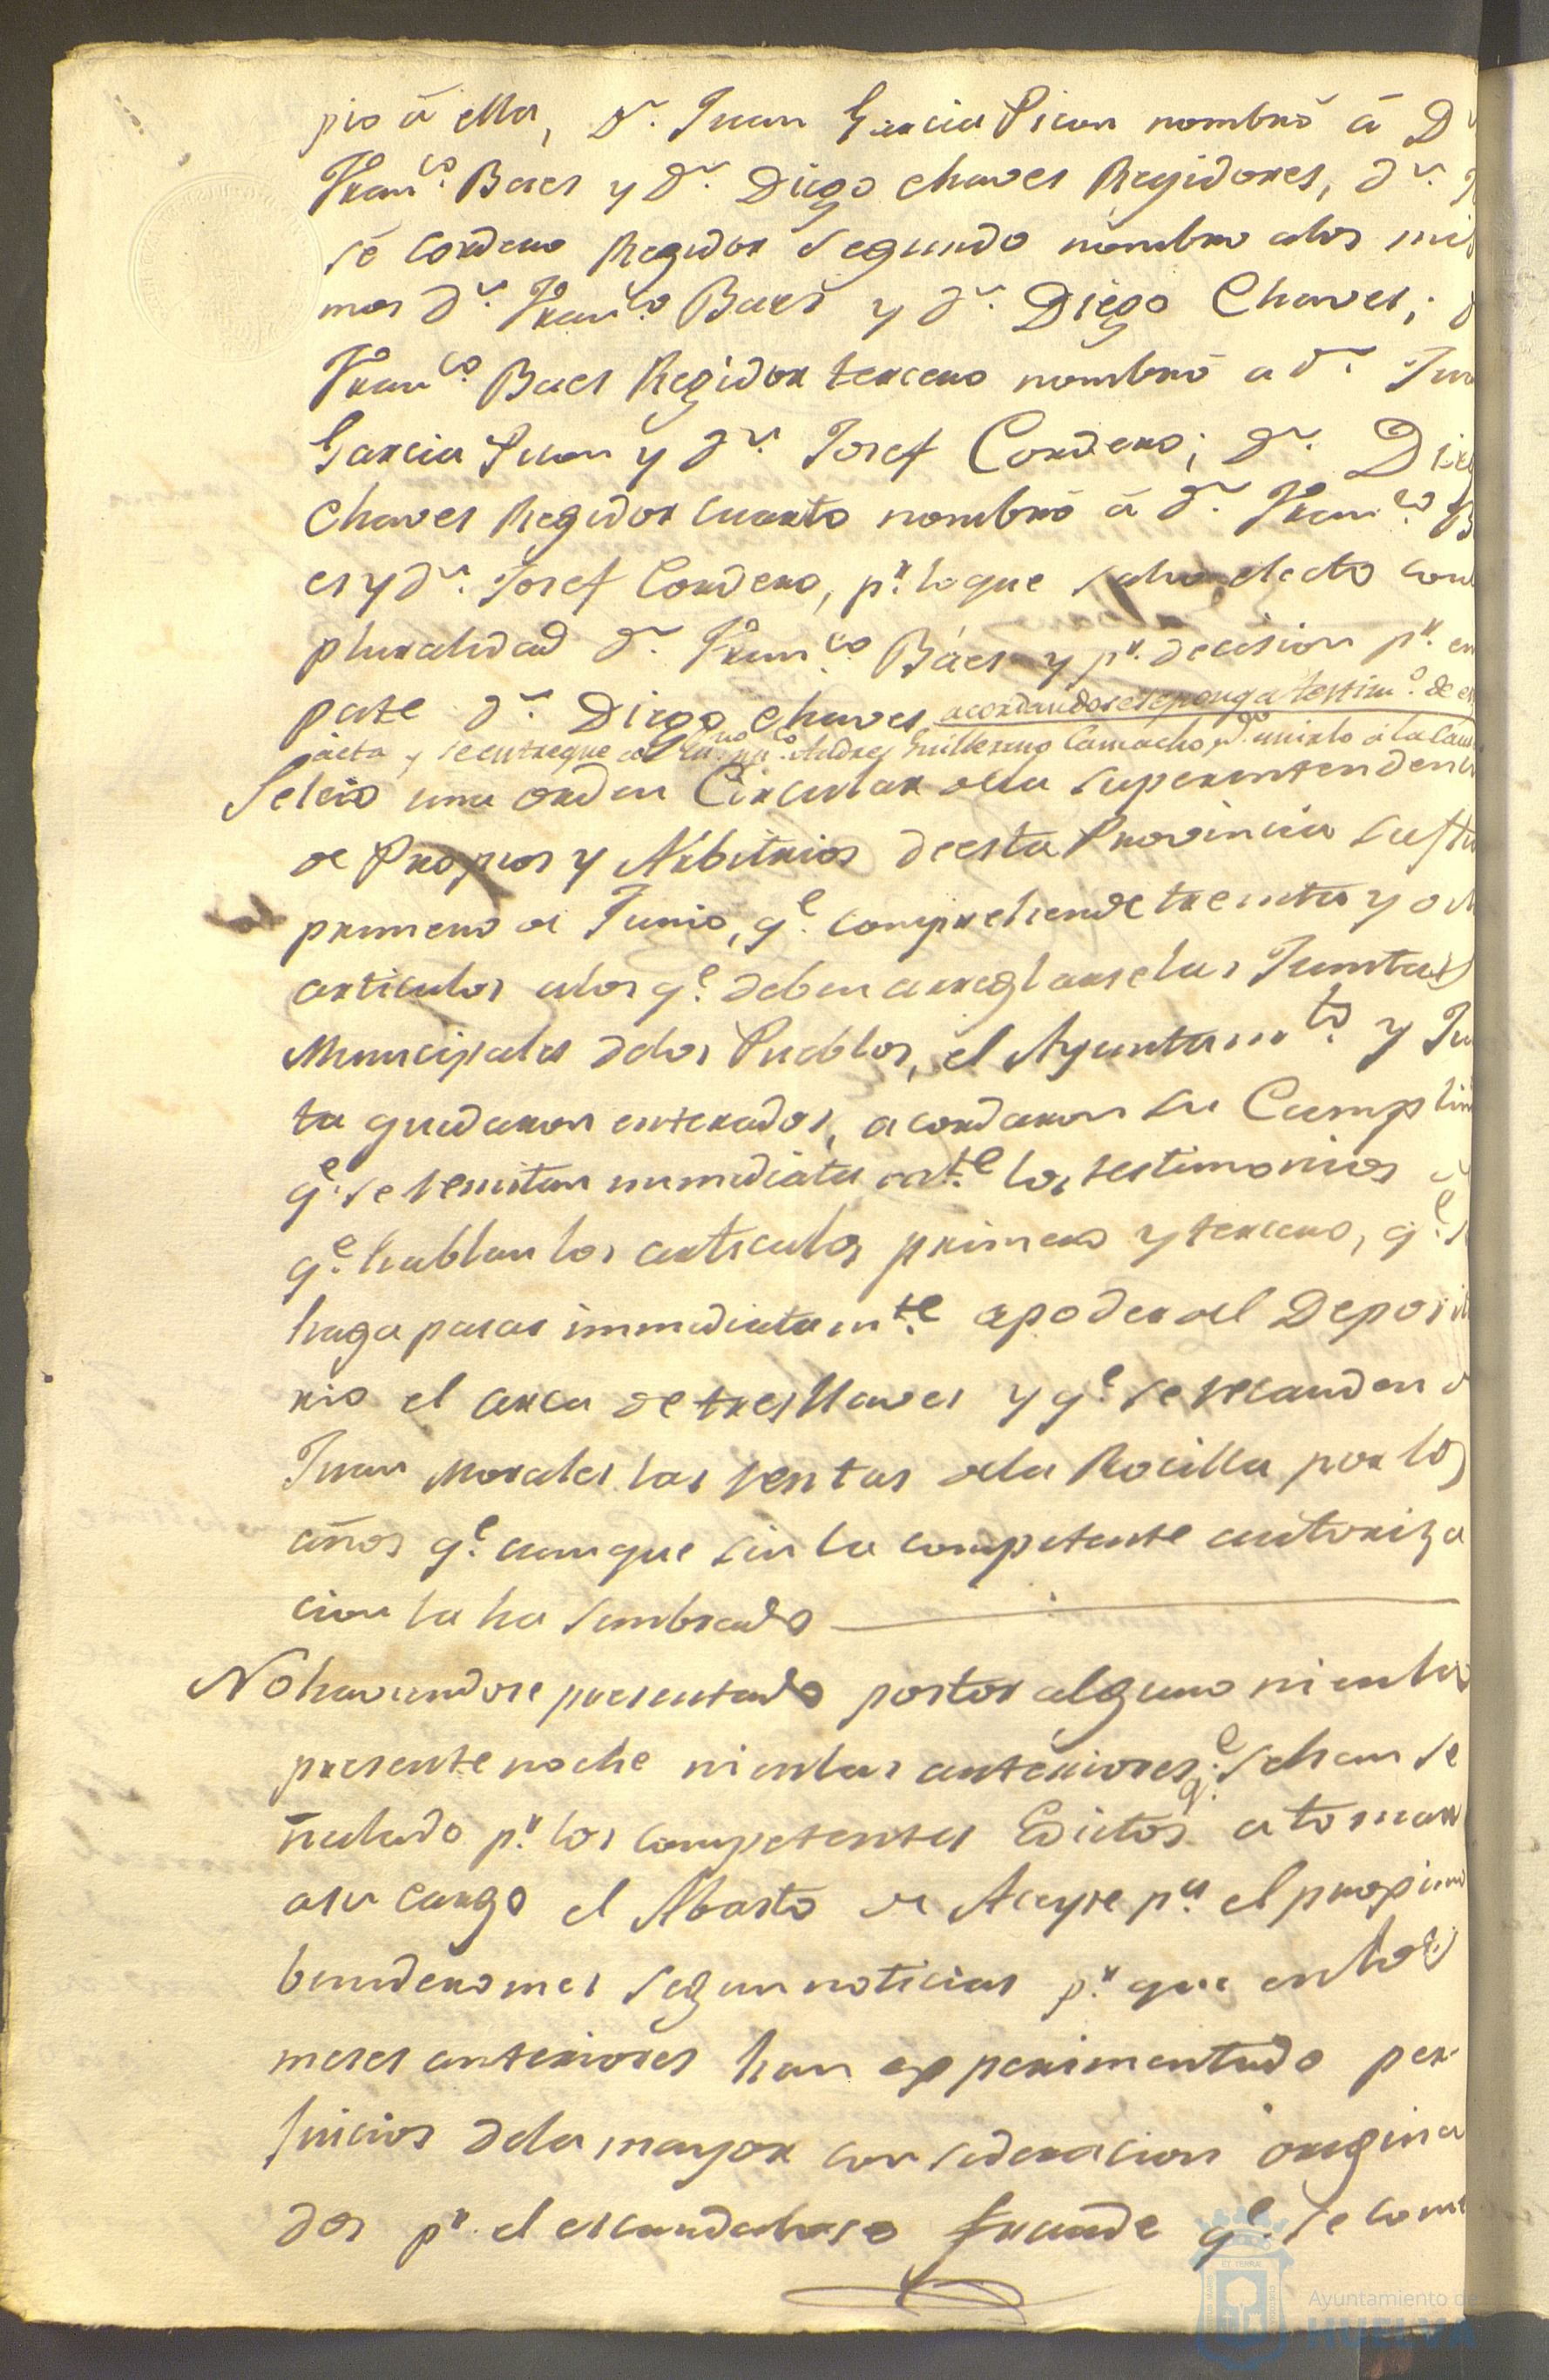 pio á ella, Dn. Juan Garcia Picon nombró á D
Franco. Baes y Dn. Diego Chaves Regidores, Dn.
sé Cordero Regidor Segundo nombro alos mis
mos Dn. Franco. Baes y Dn. Diego Chaves;
Franco. Baes Regidor tercero nombró a Dn. Jua
Garcia Picon y Dn. Josef Cordero; Dn. Dieg
Chaves Regidor cuarto nombró á Dn. Franco. B
es y Dn. Josef Cordero, pr. loque salio electo con
pluralidad Dn. Franco. Báes y pr. decision pr. em
pate Dn. Diego Chaves acordandose se ponga testimo. de es
acta y se entregue al Andres Guillermo Camacho pa. unirlo á la Cau
Seleió una orden Circular dela Superintendenci
de Propios y Arbitrios deesta Provincia su fha
primero de Junio, qe. comprehende treinta y och
articulos alos qe. deben arreglarse las Juntas
Municipales delos Pueblos, el Ayuntamto. y Jun
ta quedaron enterados, acordaron su Cumplim
qe. se remitan inmediatamte. los testimonios
qe. hablan los articulos primero y tercero, qe. s
haga pasar inmediatamte. apoder del Deposit
rio el arca de tres llaves y qe. se recauden d
Juan Morales las rentas dela Rocilla por los
años qe. aunque sin la competente autoriza
cion la ha sembrado
No haviendose presentado postor alguno ni enla
presente noche ni enlas anteriores qe. sehan se
ñalado pr. los competentes Edictos a tomar
asu cargo el Abasto de Aceyte pa. el proximo
benidero mes segun noticias pr. que enlos
meses anteriores han experimentado per-
juicios dela mayor consideracion origina
dos pr. el escandaloso fraude qe. se come
Ayuntamiento de
HUELVA